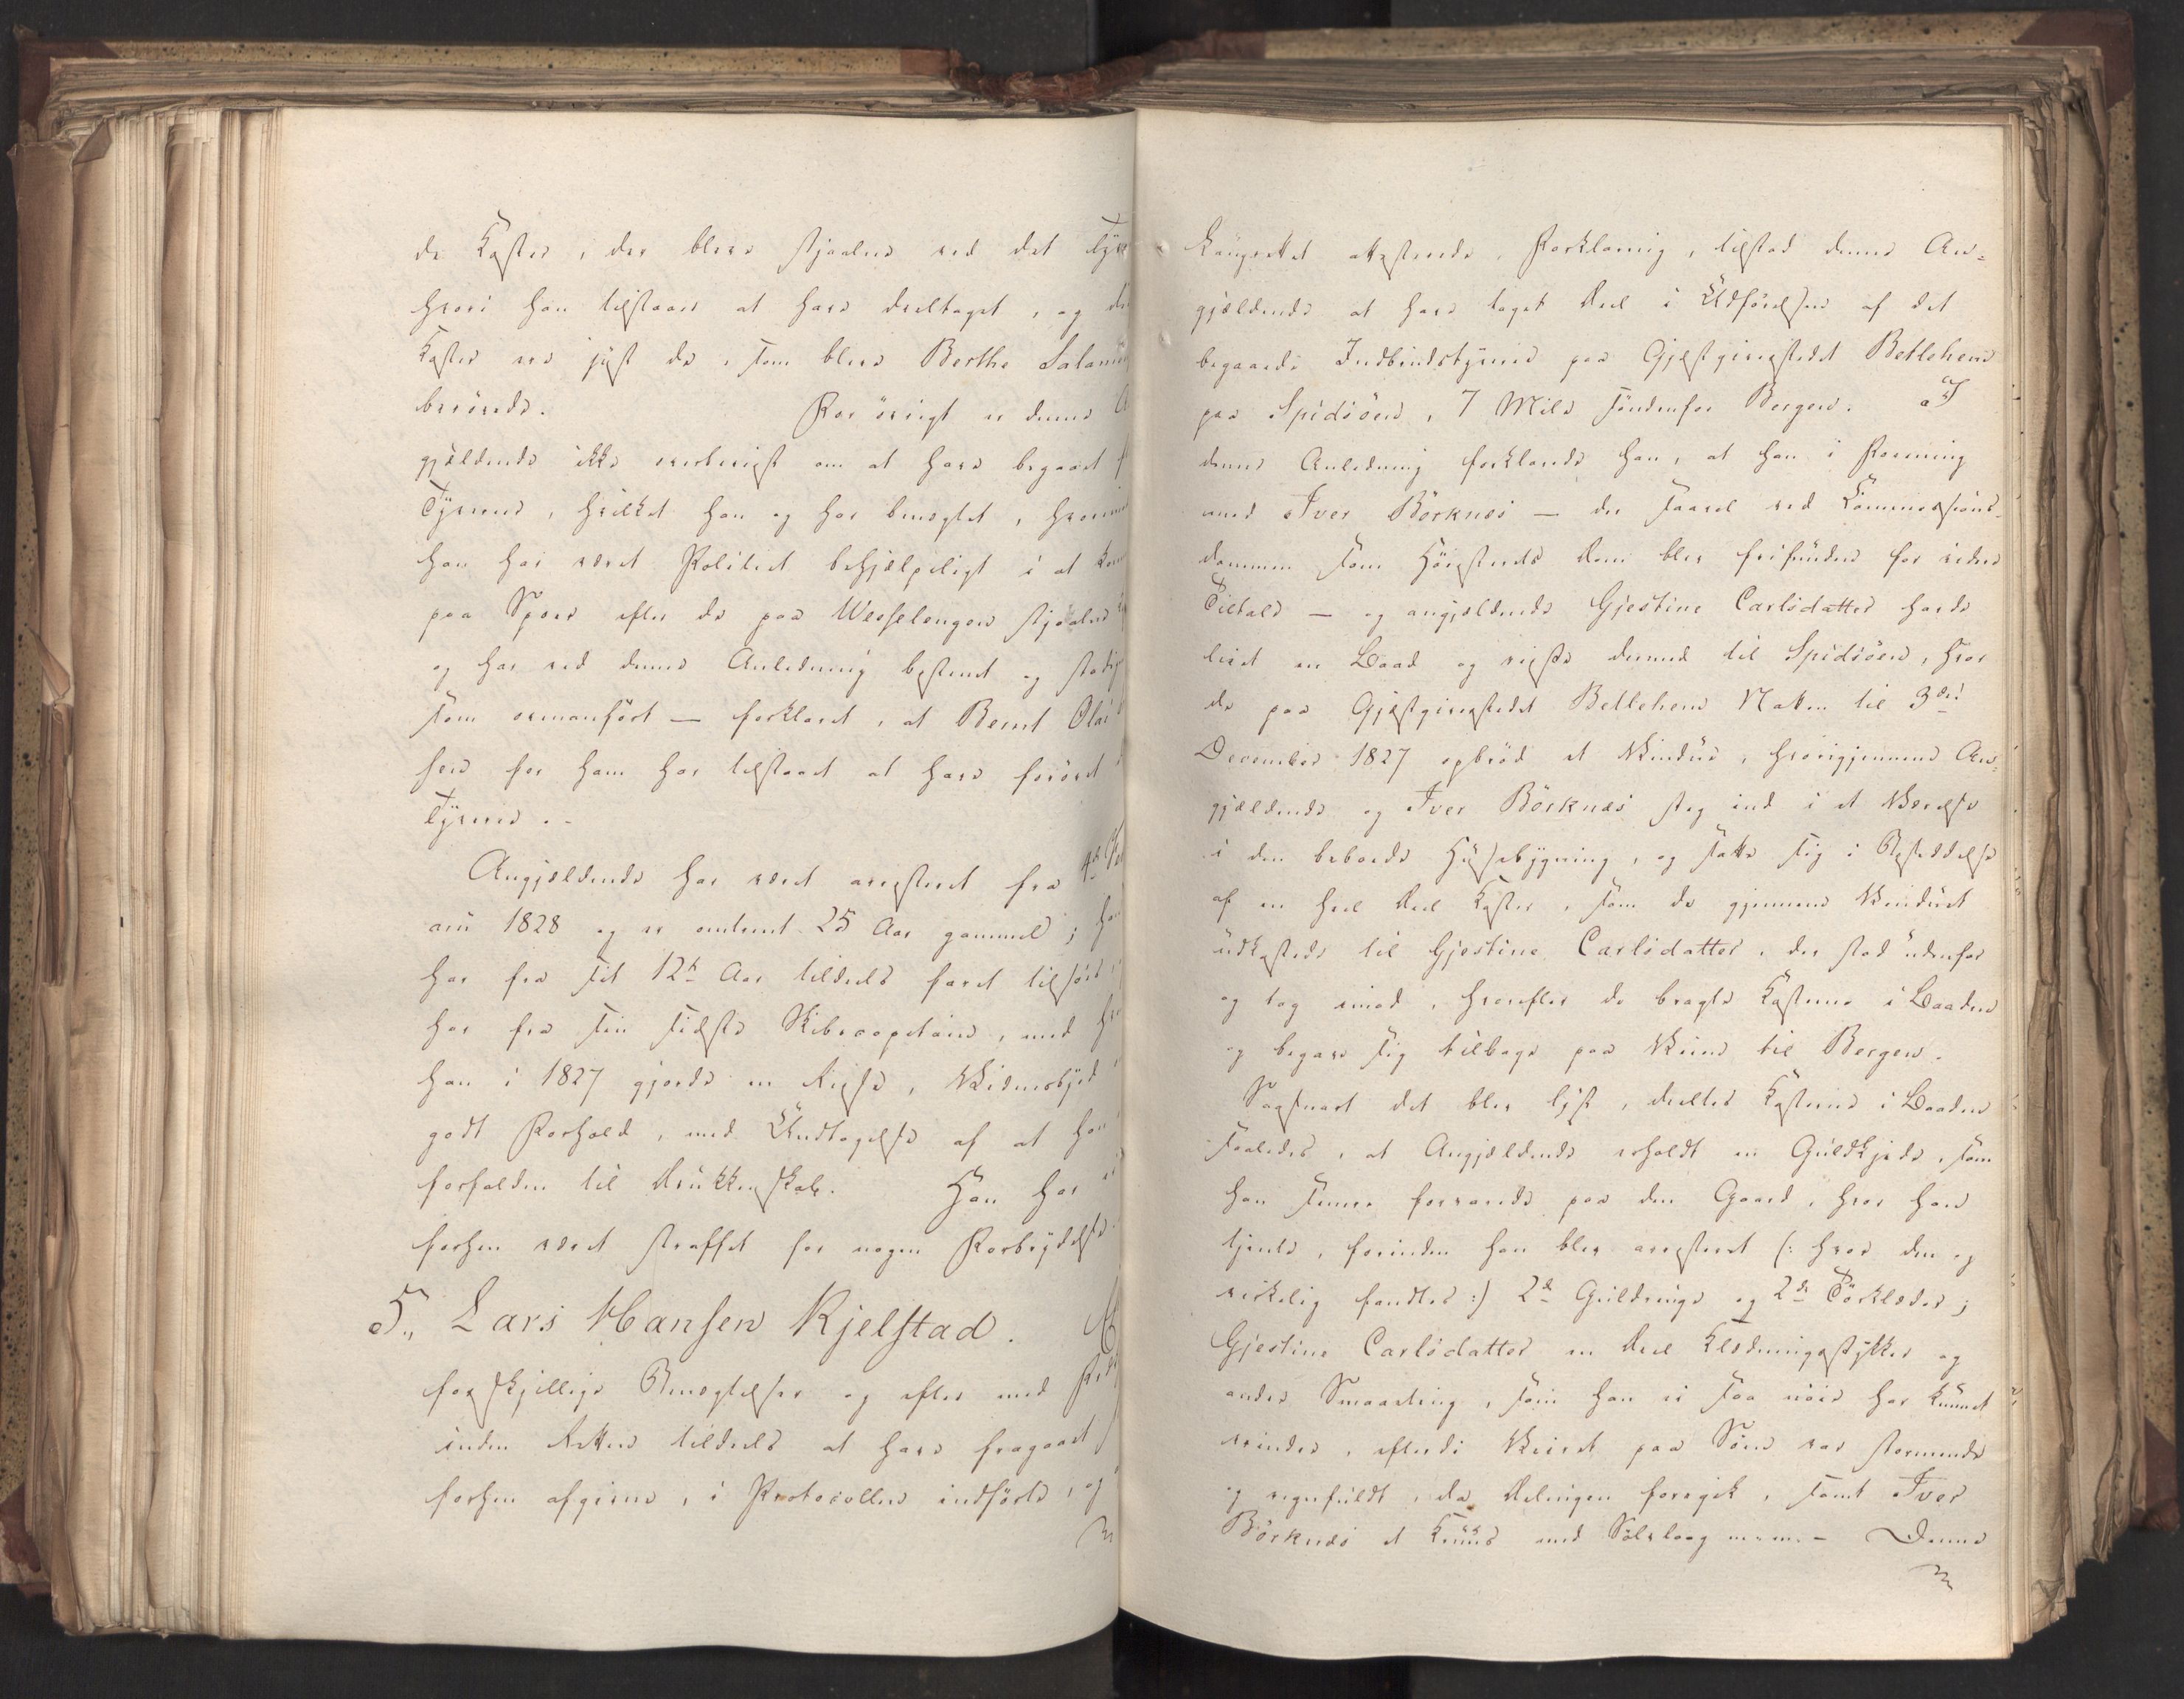 de Koster, der bleve stjaalne ved det Tyv
hvori han tilstaaer at have deeltaget, og
Koster ere just de, som bleve Berthe Salam
berövede. For övrigt er denne
gjældende ikke overbeviist om at have begaaet
Tyverie, hvilket han og har benegtet,
han har været Politiet behjælpeligt i at
paa Spor efter de paa Wesselengen stjaalne
og har ved denne Anledning bestemt og
som ovenanfört — forklaret, at Bernt Olai
sen for ham har tilstaaet at have forövet
Tyverie. -
Angjældende har været arresteret fra 4de
arii 1828 og er omtrent 25 Aar gammel;
har fra sit 12te Aar tildeels faret tilsöes,
har fra sin sidste Skibscapitain, med
han i 1827 gjorde en Reise, Vidnesbyrd
godt Forhold, med Undtagelse af at han
forfalden til Drukkenskab. Han har
forhen været straffet for nogen Forbrydelse.
5., Lars Hansen Kjelstad.
forskjellige Benegtelser og efter ved
inden Retten tildeels at have fragaaet
forhen afgivne, i Protocollen indförte, og
Langrettet attesterede, Forklaring, tilstod denne An-
gjældende at have taget Deel i Udförelsen af det
begaaede Indbrudstyverie paa Gjæstgiverstedet Betlehem
paa Spidsöen, 7 Mile söndenfor Bergen. I
denne Anledning forklarede han, at han i Forening
med Iver Börknes — der saavel ved Commissions-
dommen som Höiesterets Dom blev frifunden for videre
Tiltale — og angjældende Gjestine Carlsdatter havde
leiet en Baad og reiste dermed til Spidsöen, hvor
de paa Gjæstgiverstedet Betlehem Natten til 3die
December 1827 opbröd et Vindue, hvorigjennem An-
gjældende og Iver Börknæs steg ind i et Værelse
i den beboede Huusebygning, og satte sig i Besiddelse
af en heel Deel Koster, som de gjennem Vinduet
udkastede til Gjestine Carlsdatter, der stod udenfor
og tog imod, hvorefter de bragte Kosterne i Baaden
og begave sig tilbage paa Veien til Bergen.
Saasnart det blev lyst, deeltes Kosterne i Baaden
saaledes, at Angjældende erholdt en Guldkjede, som
han senere forvarede paa den Gaard, hvor han
tjente, forinden han blev arresteret (: hvor den og
virkelig fandtes :) 2de Guldringe og 2de Törklæder;
Gjestine Carlsdatter en Deel Klædningsstykker og
andre Smaating, som han ei saa nöie har kunnet
erindre, efterdi Veiret paa Söen var stormende
og regnfuldt, da Delingen foregik, samt Iver
Börknæs et Kruus med Sölvlaag m.m. - Denne